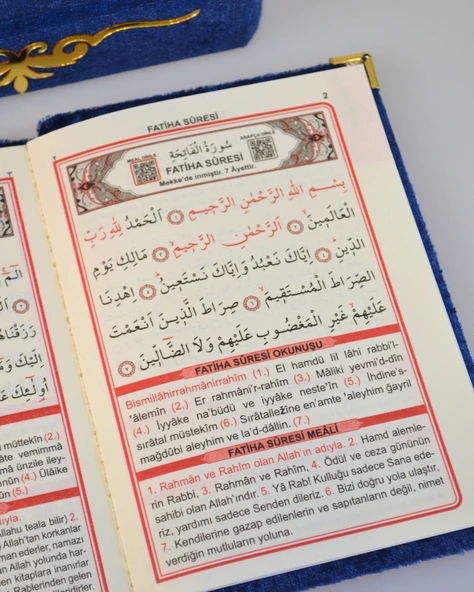 FATİHA SÛRESİ
2
MEAL DİNLE
سُورَةُ الْفَاتِحَةِ
ARAPÇA DİNLE
FATİHA SÛRESİ
Mekke'de inmiştir. 7 Âyettir.
بِسْمِ اللهِ الرَّحْمٰنِ الرَّحِيمِ ﴿١﴾ اَلْحَمْدُ لِلّٰهِ رَبِّ
الْعَالَمِينَ ﴿٢﴾ اَلرَّحْمٰنِ الرَّحِيمِ ﴿٣﴾ مَالِكِ يَوْمِ
الدِّينِ ﴿٤﴾ اِيَّاكَ نَعْبُدُ وَاِيَّاكَ نَسْتَعِينُ ﴿٥﴾ اِهْدِنَا
الصِّرَاطَ الْمُسْتَقِيمَ ﴿٦﴾ صِرَاطَ الَّذِينَ اَنْعَمْتَ
عَلَيْهِمْ غَيْرِ الْمَغْضُوبِ عَلَيْهِمْ وَلَا الضَّالِّينَ ﴿٧﴾
FATİHA SÛRESİ OKUNUŞU
Bismillâhirrahmânirrahîm (1.) El hamdü lil lâhi rabbi'l-
'âlemîn (2.) Er rahmâni'r-rahîm (3.) Mâliki yevmi'd-dîn
(4.) İyyâke na'büdü ve iyyâke neste'în (5.) İhdine's-
sırâtal müstekîm (6.) Sırâtallezîne en'amte 'aleyhim ğayril
mağdûbi aleyhim ve la'd-dâllîn (7.)
FATİHA SÛRESİ MEÂLİ
1. Rahmân ve Rahîm olan Allah'ın adıyla. 2. Hamd alemle-
rin Rabbi, 3. Rahmân ve Rahîm, 4. Ödül ve ceza gününün
sahibi olan Allah'ındır. 5. Yâ Rab! Kulluğu sadece Sana ede-
riz, yardımı sadece Senden dileriz. 6. Bizi doğru yola ulaştır,
7. Kendilerine gazap edilenlerin ve sapıtanların değil, nimet
verdiğin mutluların yoluna.